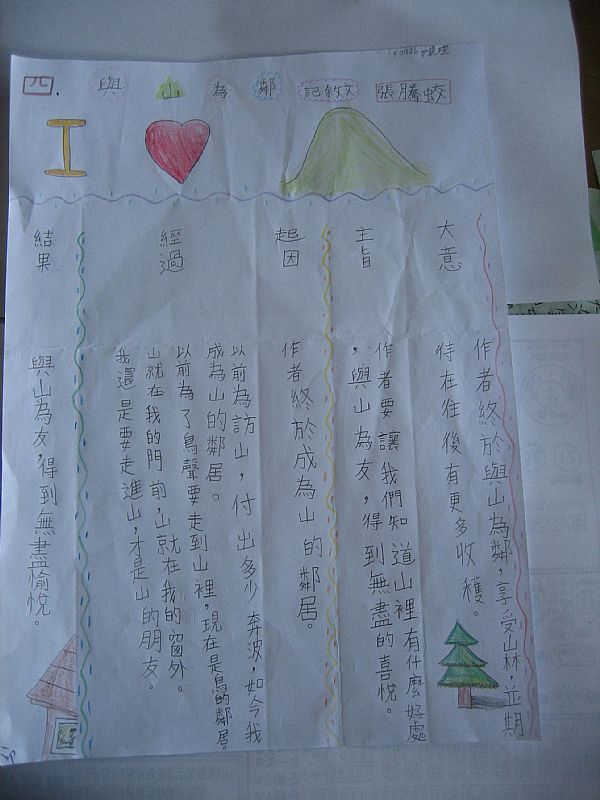 四. 與山為鄰 記敘文 張騰蛟
I
大意
作者終於與山為鄰，享受山林，並期
待在往後有更多收穫。
主旨
作者要讓我們知道山裡有什麼好處
，與山為友，得到無盡的喜悅。
起因
作者終於成為山的鄰居。
經過
以前為訪山，付出多少奔波，如今我
成為山的鄰居。
以前為了鳥聲要走到山裡，現在是鳥的鄰居。
山就在我的門前，山就在我的窗外。
我還是要走進山，才是山的朋友。
結果
與山為友，得到無盡愉悅。